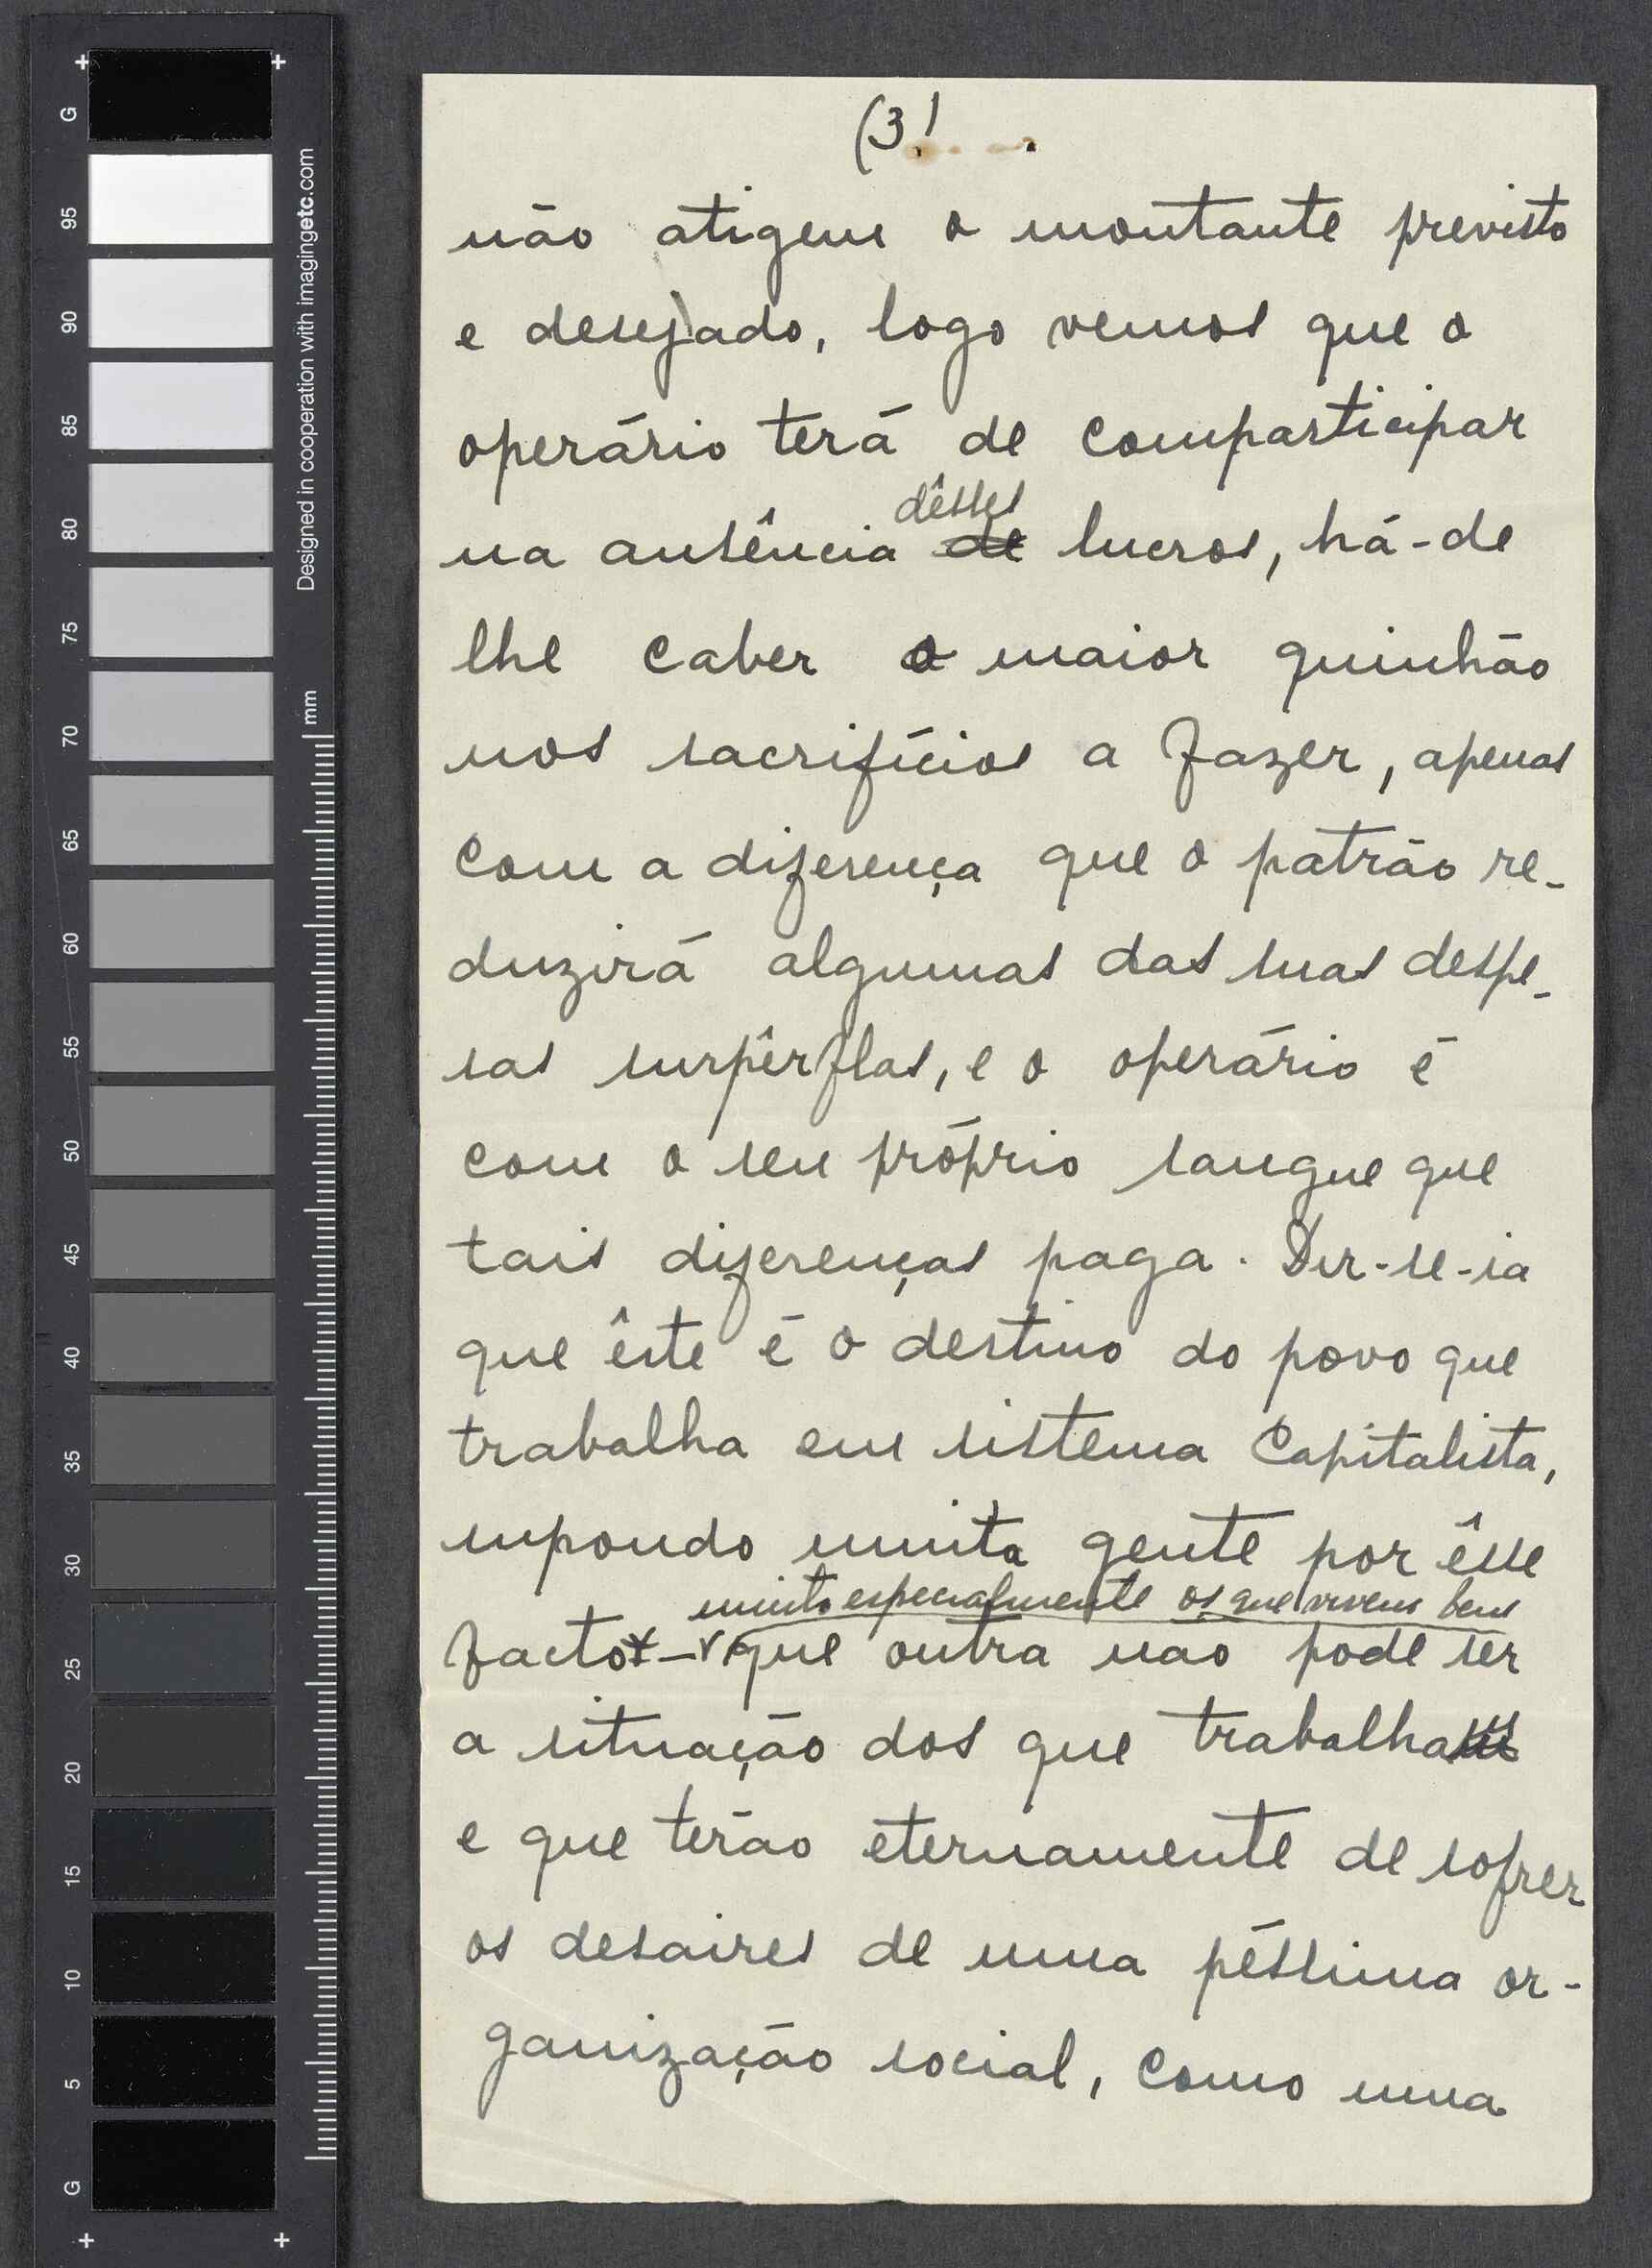 (3)
não atigem o montante previsto
e desejado, logo vemos que o
operário terá de comparticipar
dêsses
na ausência de lucros, há-de
lhe caber o maior quinhão
nos sacrifícios a fazer, apenas
com a diferença que o patrão re-
duzirá algumas das suas despe-
sas surpêrflas, e o operário é
com o seu próprio sangue que
tais diferenças paga. Dir-se-ia
que êste é o destino do povo que
trabalha em sistema Capitalista,
supondo muita gente por êsse
muito especialmente os que vivem bem
facto - que outra não pode ser
a situação dos que trabalham
e que terão eternamente de sofrer
os desaires de uma péssima or-
ganização social, como uma
G
95
90
85
80
75
70
65
60
55
50
45
40
35
30
25
20
15
10
5
G
Designed in cooperation with imagingetc.com
mm